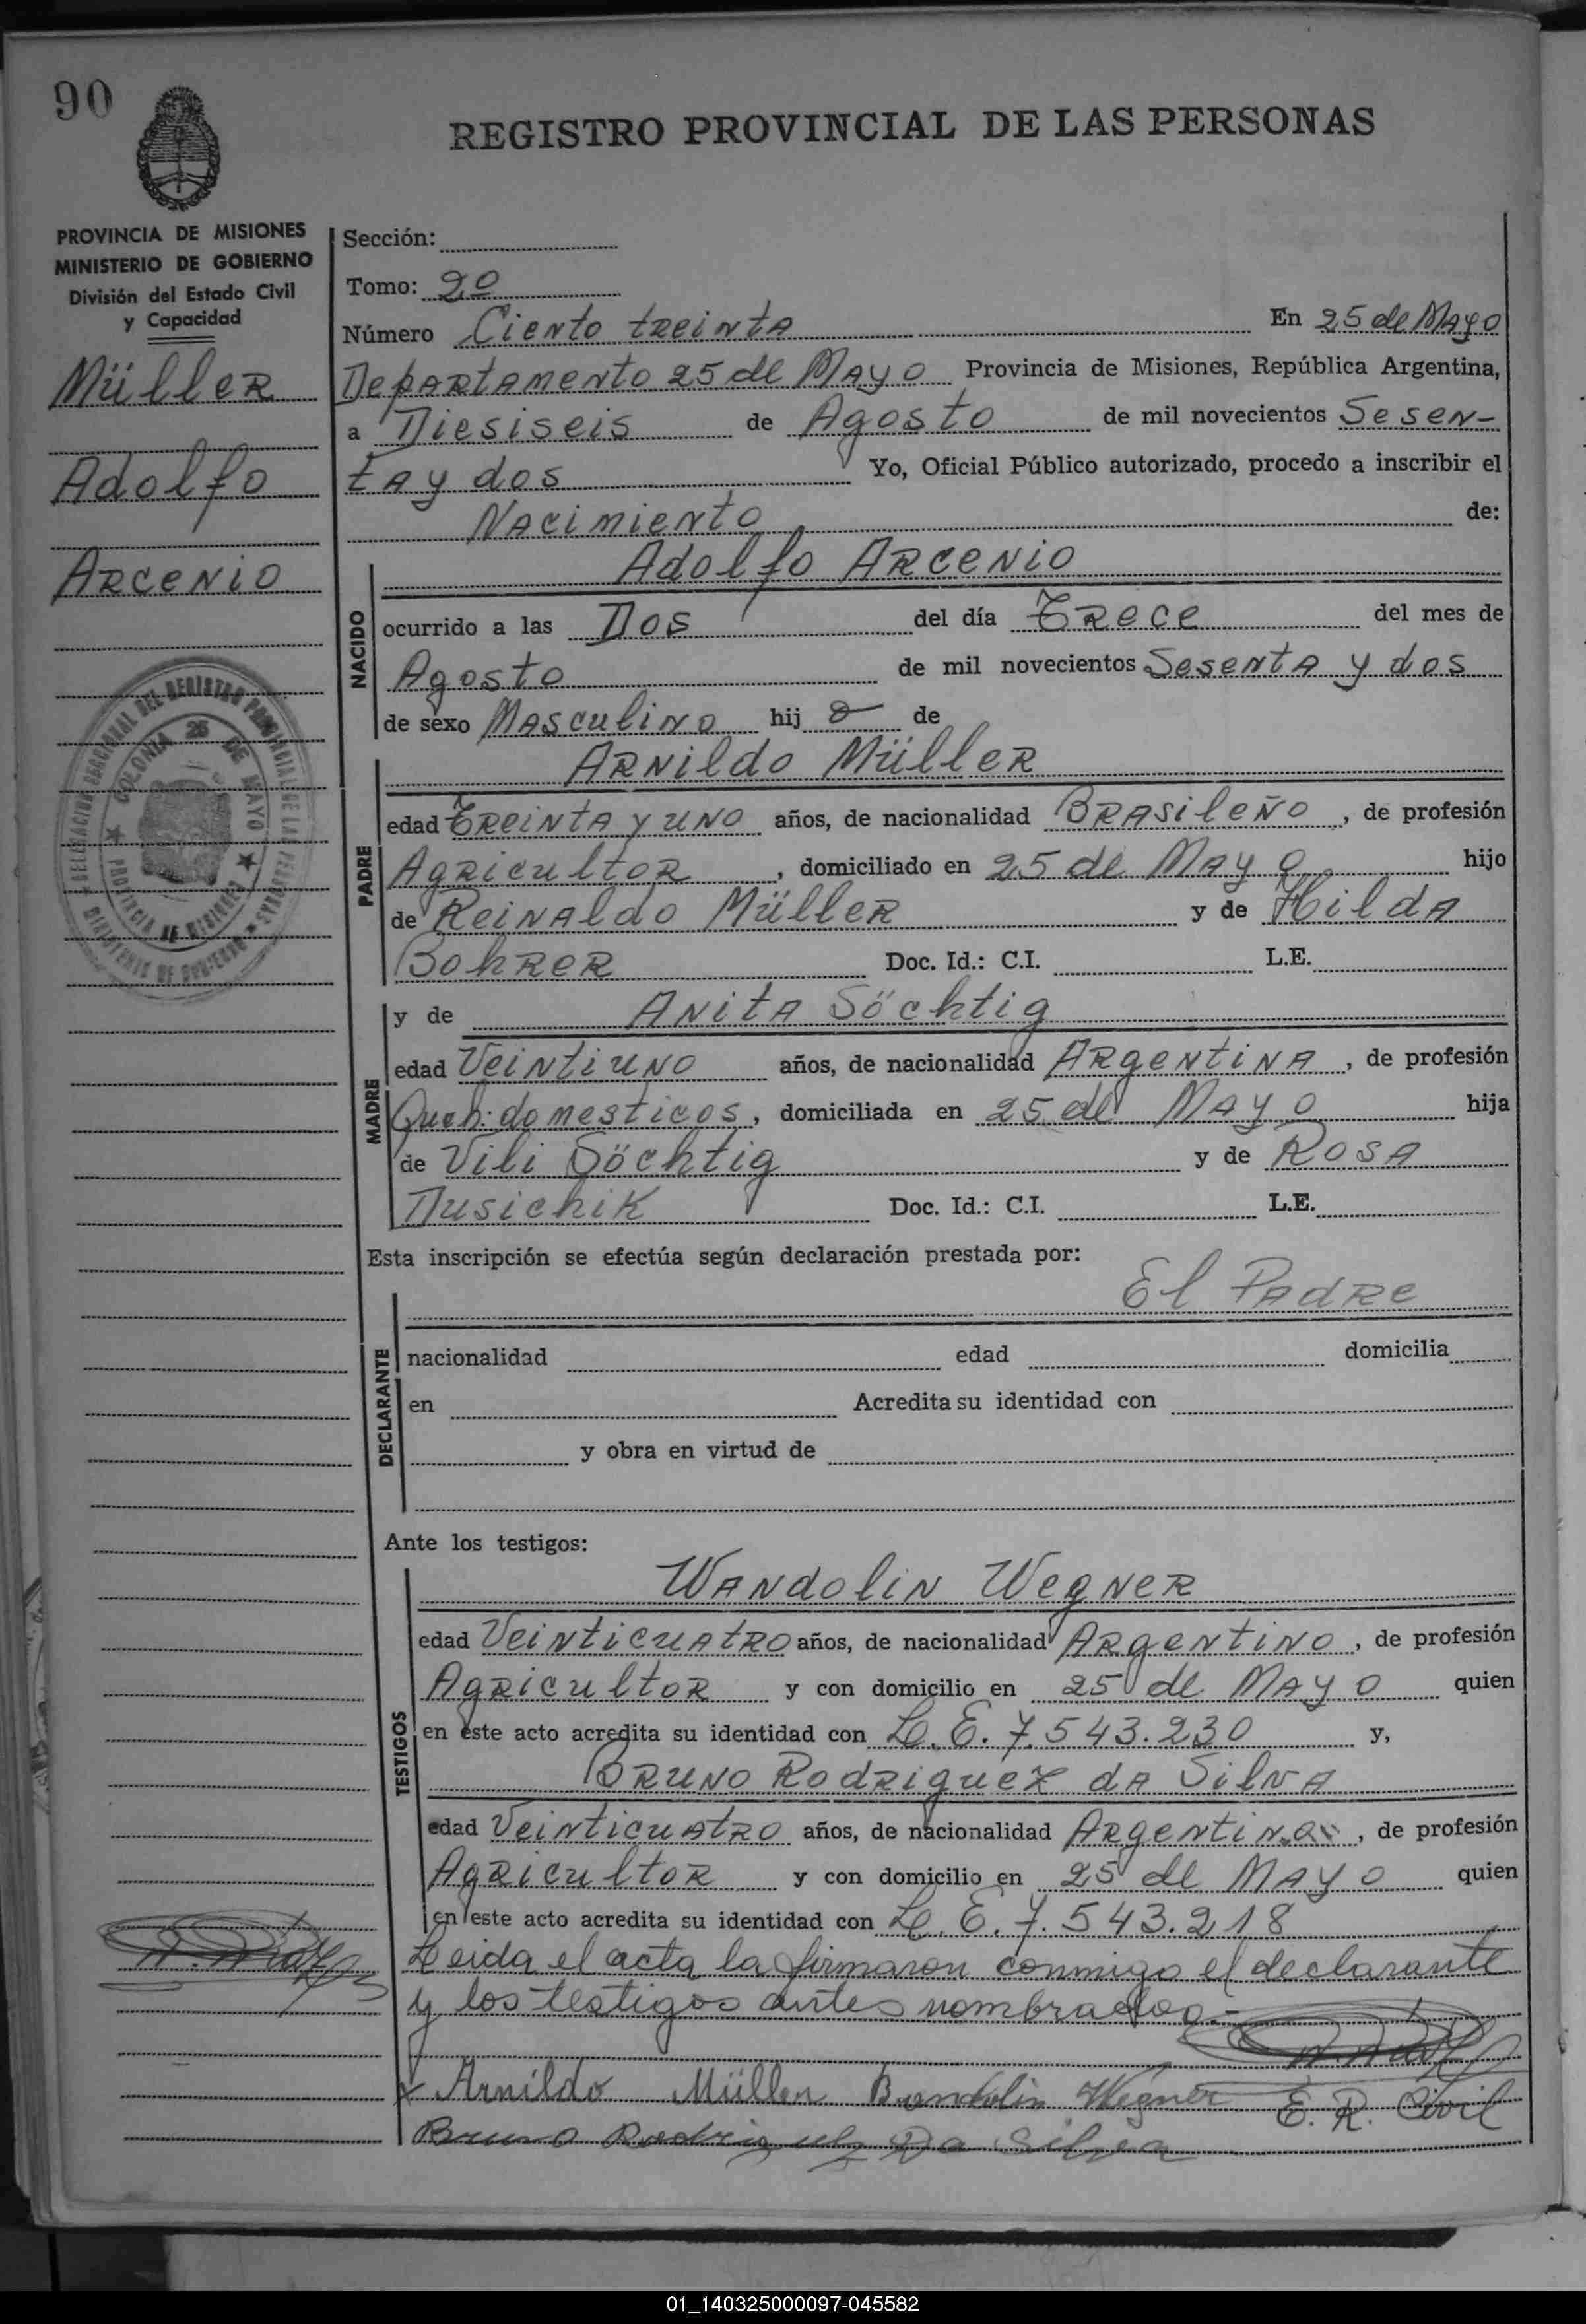 90
REGISTRO PROVINCIAL DE LAS PERSONAS
PROVINCIA DE MISIONES
MINISTERIO DE GOBIERNO
División del Estado Civil
y Capacidad
Müller
Adolfo
Arcenio
Sección:
Tomo: 2º
Número Ciento treinta En 25 de Mayo
Departamento 25 de Mayo Provincia de Misiones, República Argentina,
a Diesiseis de Agosto de mil novecientos Sesen-
ta y dos Yo, Oficial Público autorizado, procedo a inscribir el
Nacimiento de:
NACIDO
Adolfo Arcenio
ocurrido a las Dos del día Trece del mes de
Agosto de mil novecientos Sesenta y dos
de sexo Masculino hij o de
PADRE
Arnildo Müller
edad Treinta y uno años, de nacionalidad Brasileño, de profesión
Agricultor, domiciliado en 25 de Mayo hijo
de Reinaldo Müller y de Hilda
Bohrer Doc. Id.: C.I. L.E.
MADRE
y de Anita Söchtig
edad Veintiuno años, de nacionalidad Argentina, de profesión
Queh: domesticos, domiciliada en 25 de Mayo hija
de Vili Söchtig y de Rosa
Dusichik Doc. Id.: C.I. L.E.
Esta inscripción se efectúa según declaración prestada por:
El Padre
DECLARANTE
nacionalidad edad domicilia
en Acredita su identidad con
y obra en virtud de
Ante los testigos:
TESTIGOS
Wandolin Wegner
edad Veinticuatro años, de nacionalidad Argentino, de profesión
Agricultor y con domicilio en 25 de Mayo quien
en este acto acredita su identidad con L.E. 7.543.230 y,
Bruno Rodriguez da Silva
edad Veinticuatro años, de nacionalidad Argentina, de profesión
Agricultor y con domicilio en 25 de Mayo quien
en este acto acredita su identidad con L.E. 7.543.218
Leida el acta la firmaron conmigo el declarante
y los testigos antes nombrados.-
x Arnildo Müller Bandolin Wegner E. R. Civil
Bruno Rodriguez Da Silva
COLONIA 25 DE MAYO
PROVINCIA DE MISIONES
MINISTERIO DE GOBIERNO
01_140325000097-045582